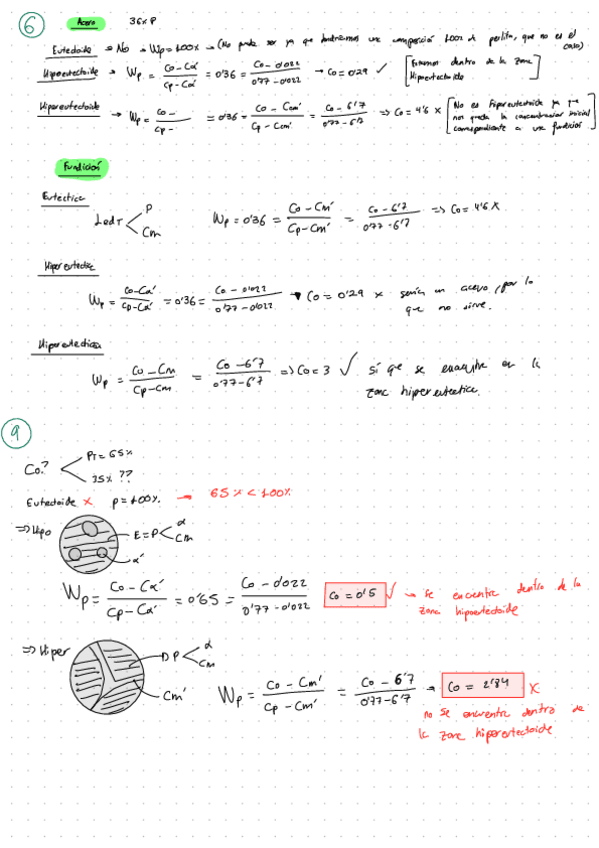 6 Acero 36% P
Eutectoide → No → Wp = 100% → (No puede ser ya que tendríamos una composición 100% de perlita, que no es el caso)
Hipoeutectoide → Wp = Co - Cα' / Cp - Cα' = 0'36 = Co - 0'022 / 0'77 - 0'022 → Co = 0'29 ✓ [Estamos dentro de la zona Hipoeutectoide]
Hipereutectoide → Wp = Co - / Cp - = 0'36 = Co - Ccm' / Cp - Ccm' = Co - 6'7 / 0'77 - 6'7 => Co = 4'6 X [No es hipereutectoide ya que nos queda la concentración inicial correspondiente a una fundición]
Fundición
Eutectica
LedT < P
Cm
Wp = 0'36 = Co - Cm' / Cp - Cm' = Co - 6'7 / 0'77 - 6'7 => Co = 4'6 X
Hipoeutectica
Wp = Co - Cα' / Cp - Cα' = 0'36 = Co - 0'022 / 0'77 - 0'022 → Co = 0'29 X sería un acero, por lo que no sirve.
Hipereutectica
Wp = Co - Cm / Cp - Cm = Co - 6'7 / 0'77 - 6'7 => Co = 3 ✓ sí que se encuentra en la zona hipereutectica.
9
Co? < PT = 65%
35% ??
Eutectoide X p = 100%. → 65% < 100%
=> Hipo E = P < α
Cm
α'
Wp = Co - Cα' / Cp - Cα' = 0'65 = Co - 0'022 / 0'77 - 0'022 Co = 0'5 ✓ → Se encuentra dentro de la zona hipoeutectoide
=> Hiper P < α
Cm
Cm'
Wp = Co - Cm' / Cp - Cm' = Co - 6'7 / 0'77 - 6'7 → Co = 2'84 X
no se encuentra dentro de
la zona hipereutectoide